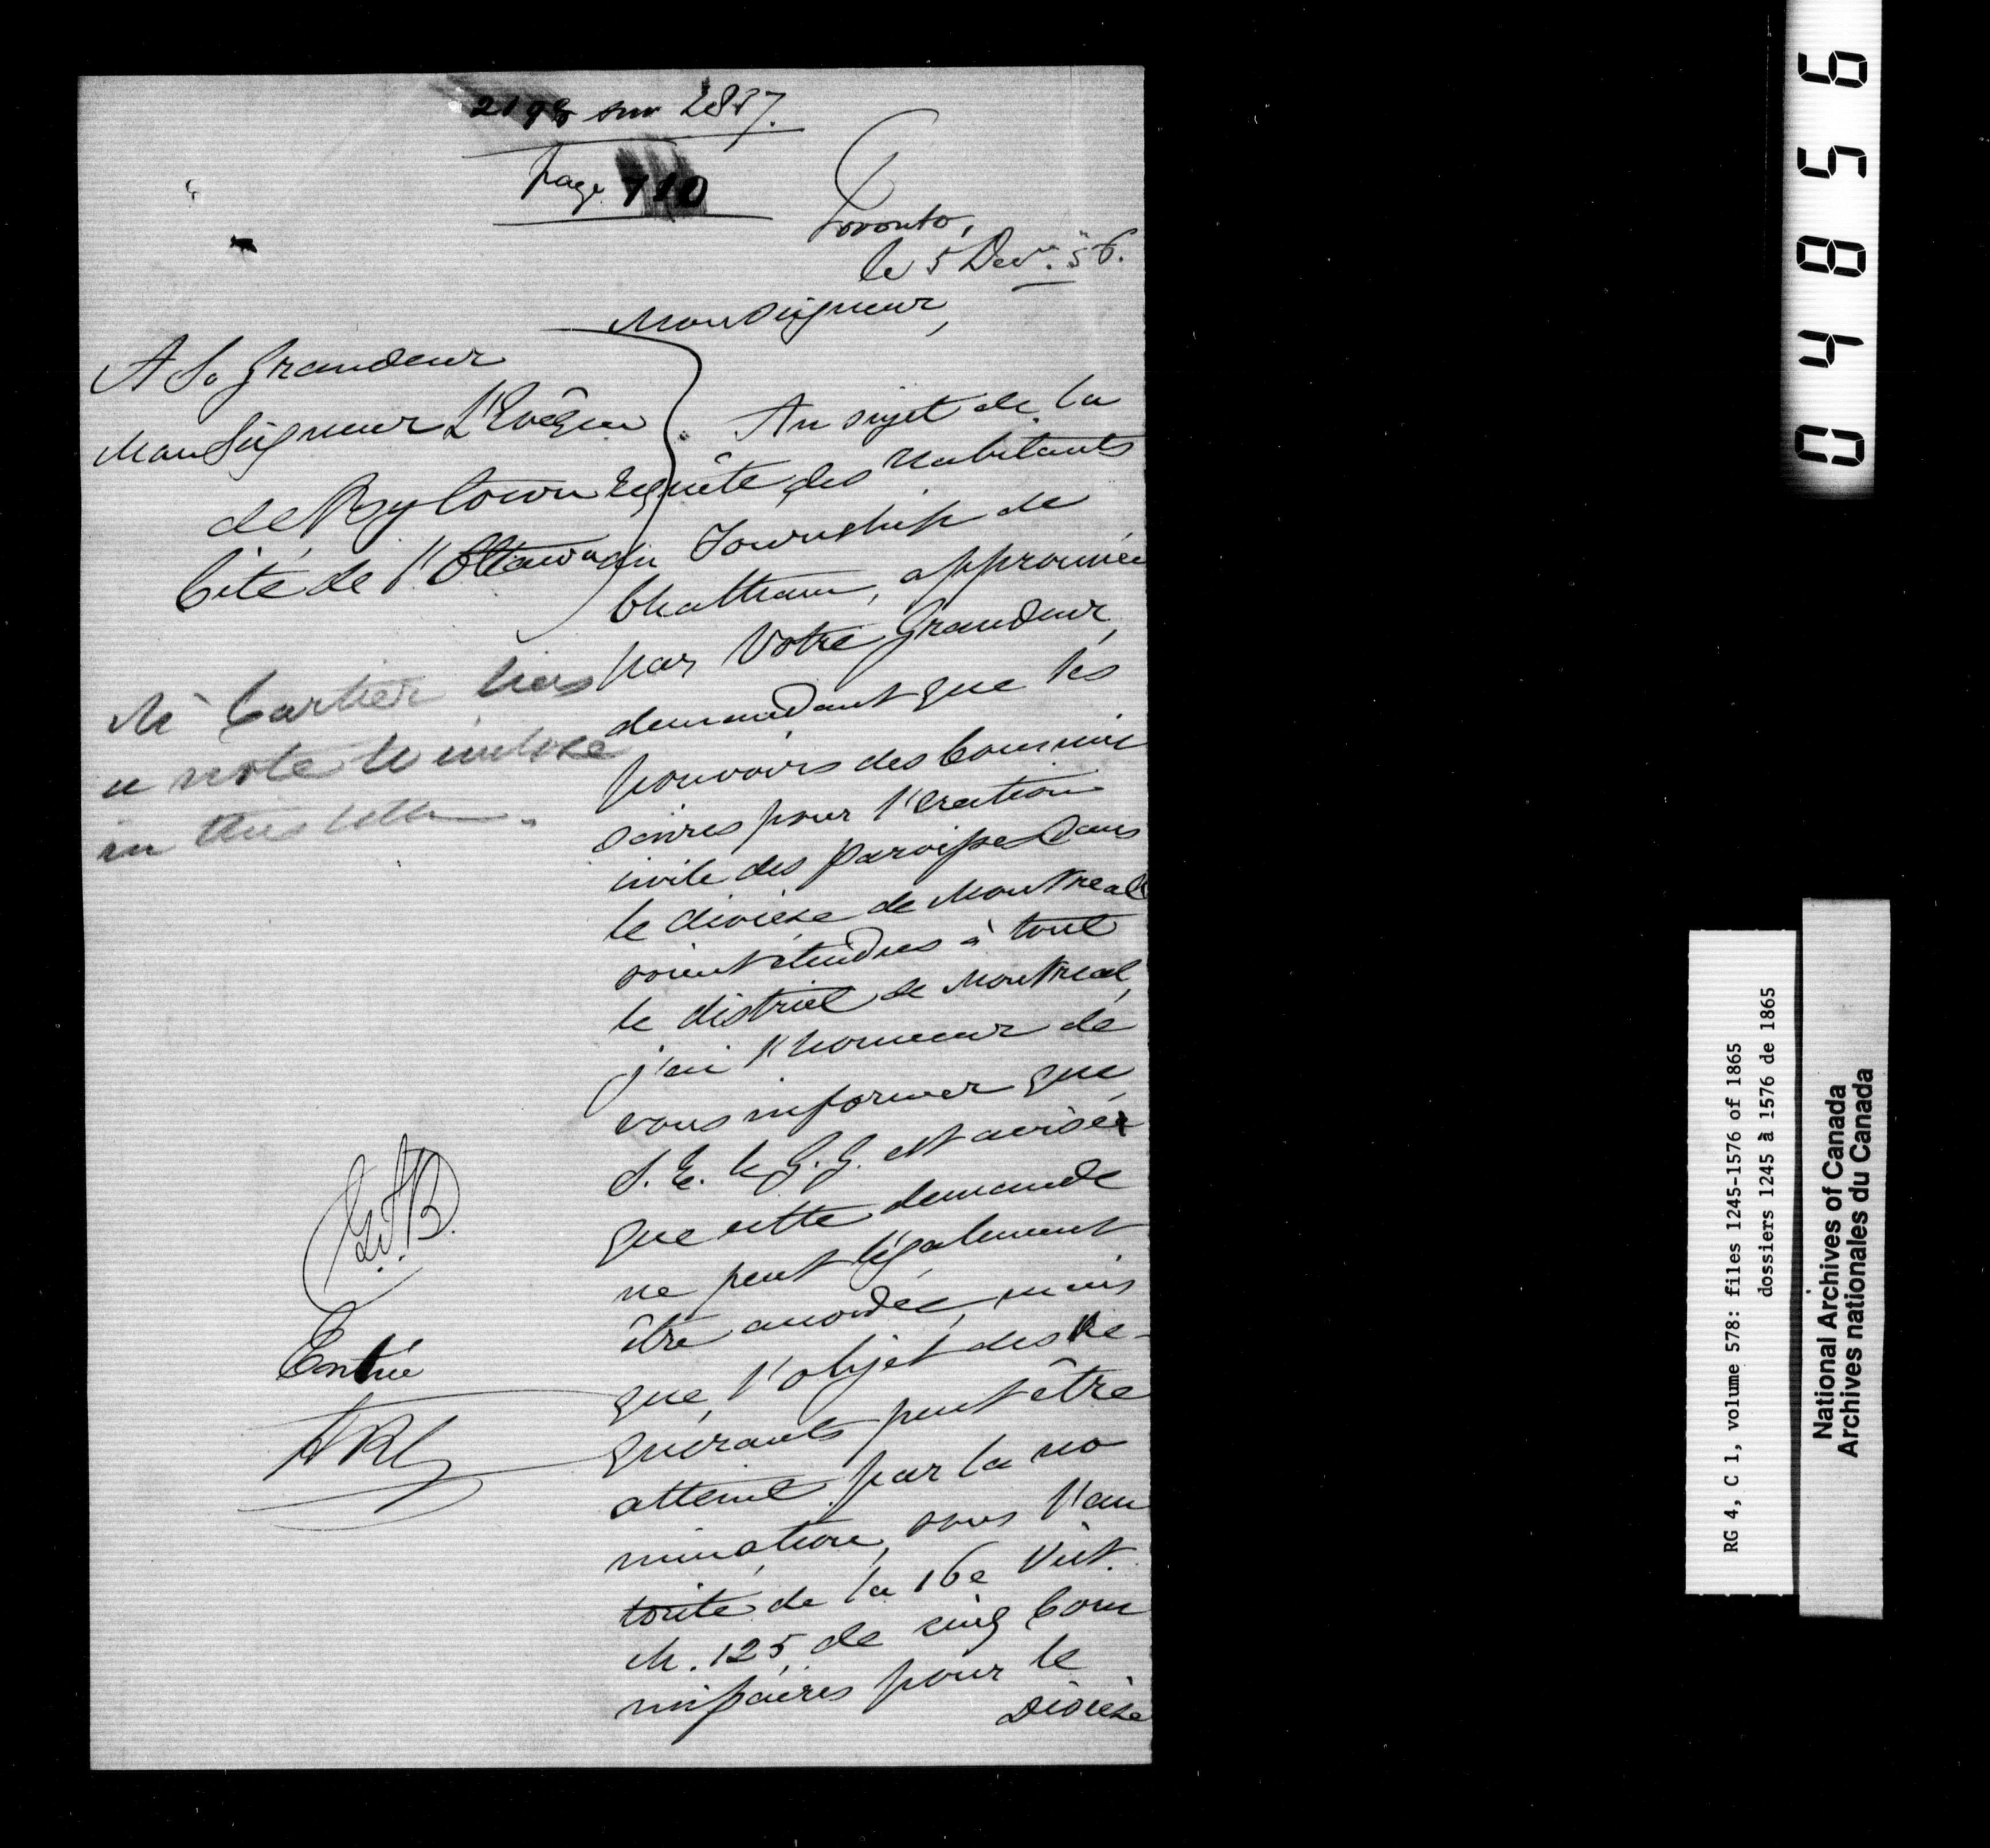 2198 sur 2857.
page 710
Toronto,
le 5 Decr. 56.
Monseigneur,
A Sa Grandeur
Monseigneur L'Evêque
de Bytown
Cité de l'Ottawa
Au sujet de la
Requête des Habitants
du Township de
Chatham, approuvée
par Votre Grandeur,
demandant que les
pouvoirs des Commis
saires pour l'érection
civile des paroisses dans
le diocèse de Montreal
soient étendus à tout
le district de Montreal,
j'ai l'honneur de
vous informer que
S. E. le G. G. est avisé
que cette demande
ne peut légalement
être accordée, mais
que l'objet des Re-
quérants peut être
atteint par la no
mination, sous l'au
torité de la 16e Vict.
ch. 125, de cinq Com
missaires pour le
Diocèse
Mr Cartier has
a note to inclose
in this letter.
Entrée
04856
RG 4, C 1, volume 578: files 1245-1576 of 1865
dossiers 1245 à 1576 de 1865
National Archives of Canada
Archives nationales du Canada